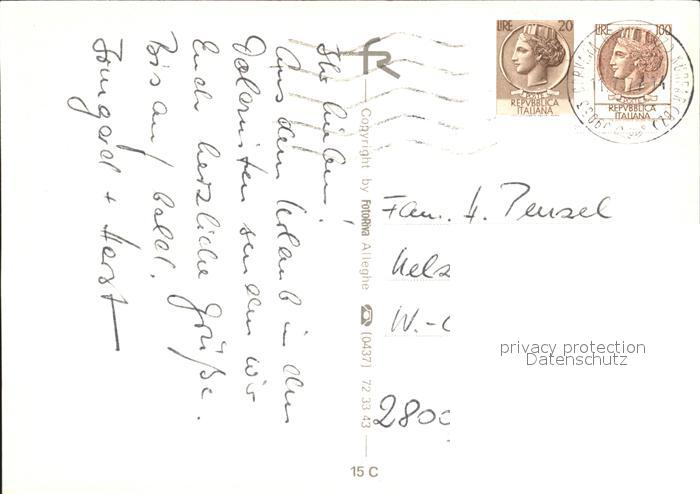 Ihr lieben!
Aus dem Urlaub in den
Dolomiten senden wir
Euch herzliche Grüße.
Bis auf bald.
Irmgard + Horst
fR
Copyright by FotoRiva Alleghe (0437) 72 33 43
15 C
LIRE 20
POSTE
REPVBBLICA
ITALIANA
LIRE 100
REPVBBLICA
ITALIANA
Fam. H. Pensel
W.-
2800
privacy protection
Datenschutz